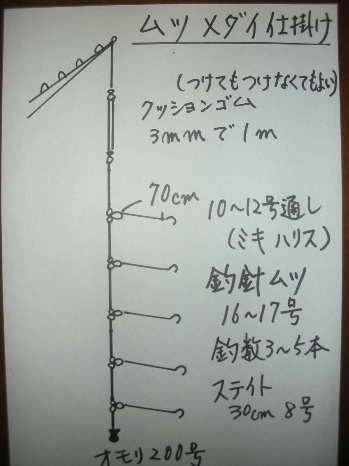 ムツ メダイ仕掛け
(つけてもつけなくてもよい)
クッションゴム
3mmで1m
70cm
10〜12号通し
(ミキ ハリス)
釣針ムツ
16〜17号
釣数3〜5本
ステイト
30cm 8号
オモリ200号